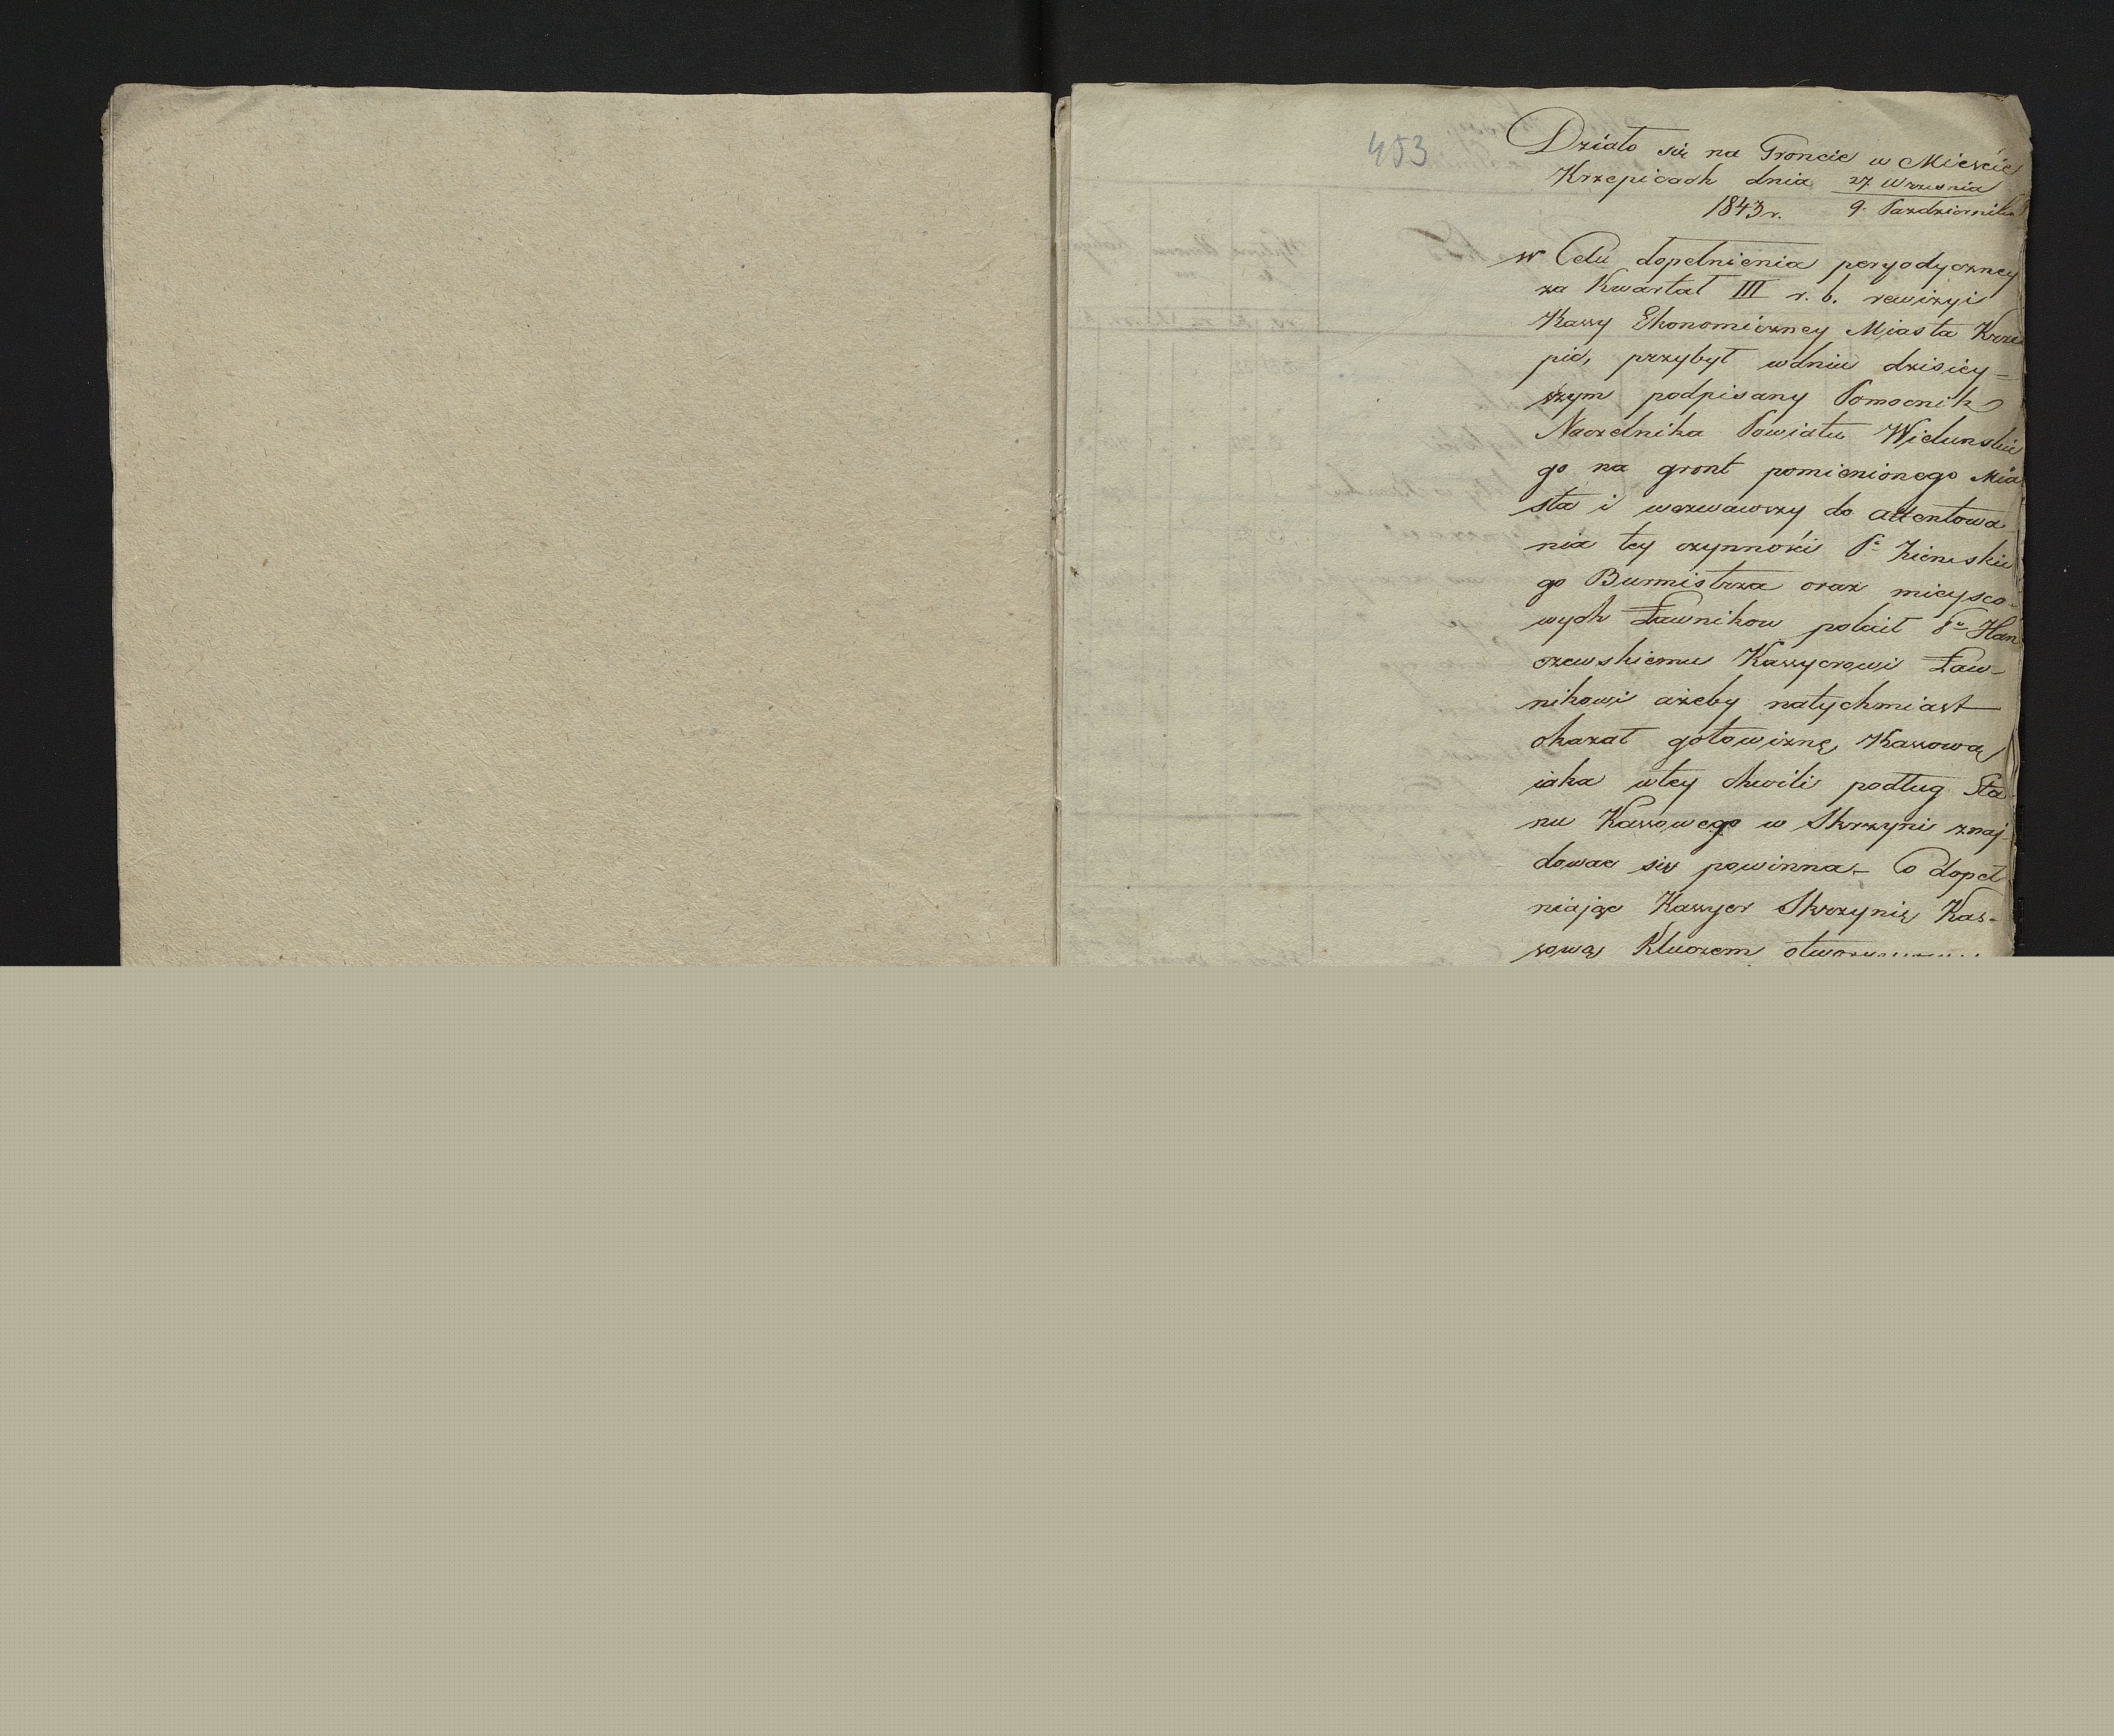 453
Działo się na Groncie w Mieście
Krzepicach dnia 27 Wrzesnia
1843 r. 9. Pazdziernika
w Celu dopełnienia peryodyczney
za Kwartał III r. b. rewizyi
Kassy Ekonomiczney Miasta Krze
pic, przybył wdniu dzisiey-
szym podpisany Pomocnik
Naczelnika Powiatu Wielunskie
go na gront pomienionego Mia
sta i wezwawszy do attentowa
nia tey czynności Pa
go Burmistrza oraz mieysco-
wych Ławnikow polecił Pu Han
czewskiemu Kassyerowi Ław-
nikowi ażeby natychmiast
okazał gotowiznę Kassową
iaka wtey chwili podług Sta
nu Kassowego w Skrzyni znaj-
dować się powinna. Co dopeł
niając Kassyer Skrzynię Kas-
sową Kluczem